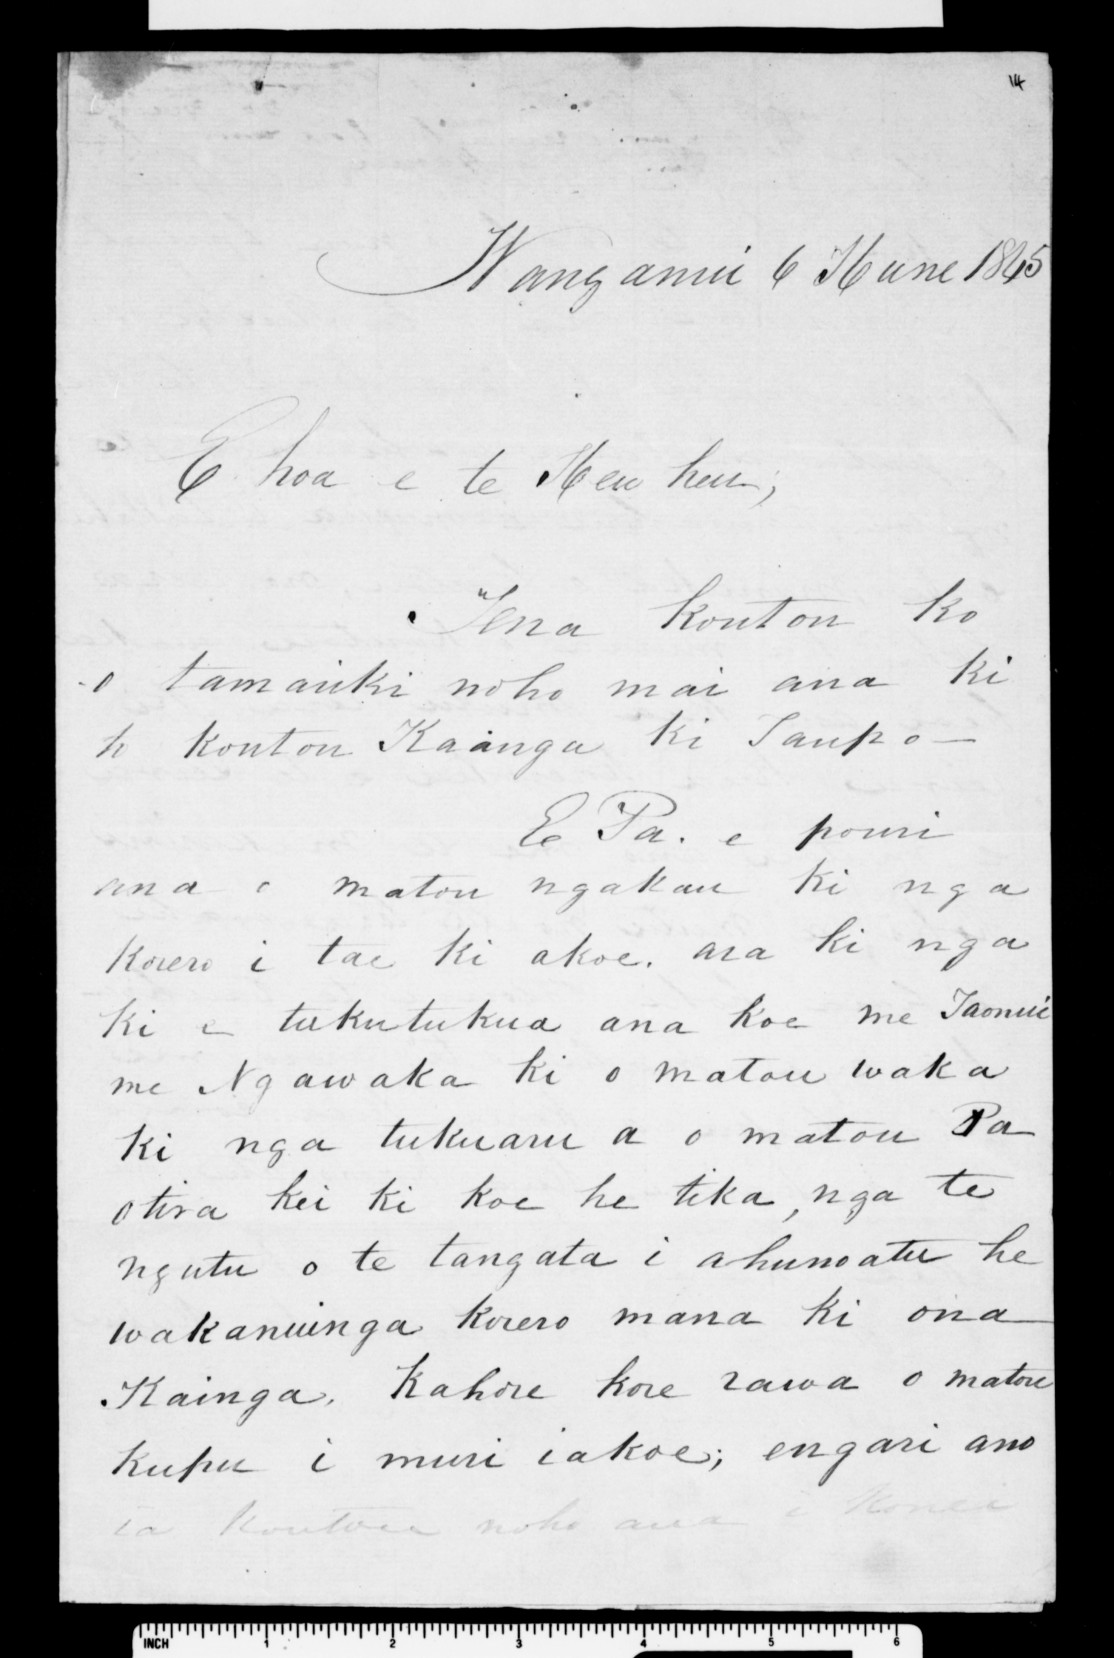 14
Wanganui 6 Hune 1845
E hoa e te Heu heu;
Tena koutou ko
o tamariki noho mai ana ki
to koutou Kaainga ki Taupo—
E Pa. e pouri
ana o matou ngakau ki nga
korero i tae ki akoe. ara ki nga
ki e tukutukua ana koe me Taonui
me Ngawaka ki o matou waka
ki nga tukuaru a o matou Pa
otira kei ki koe he tika, nga te
ngutu o te tangata i ahunoatu he
wakanuinga korero mana ki ona
Kainga. Kahore kore rawa o matou
kupu i muri iakoe; engari ano
ia koutou noho ana i konei
INCH 1 2 3 4 5 6